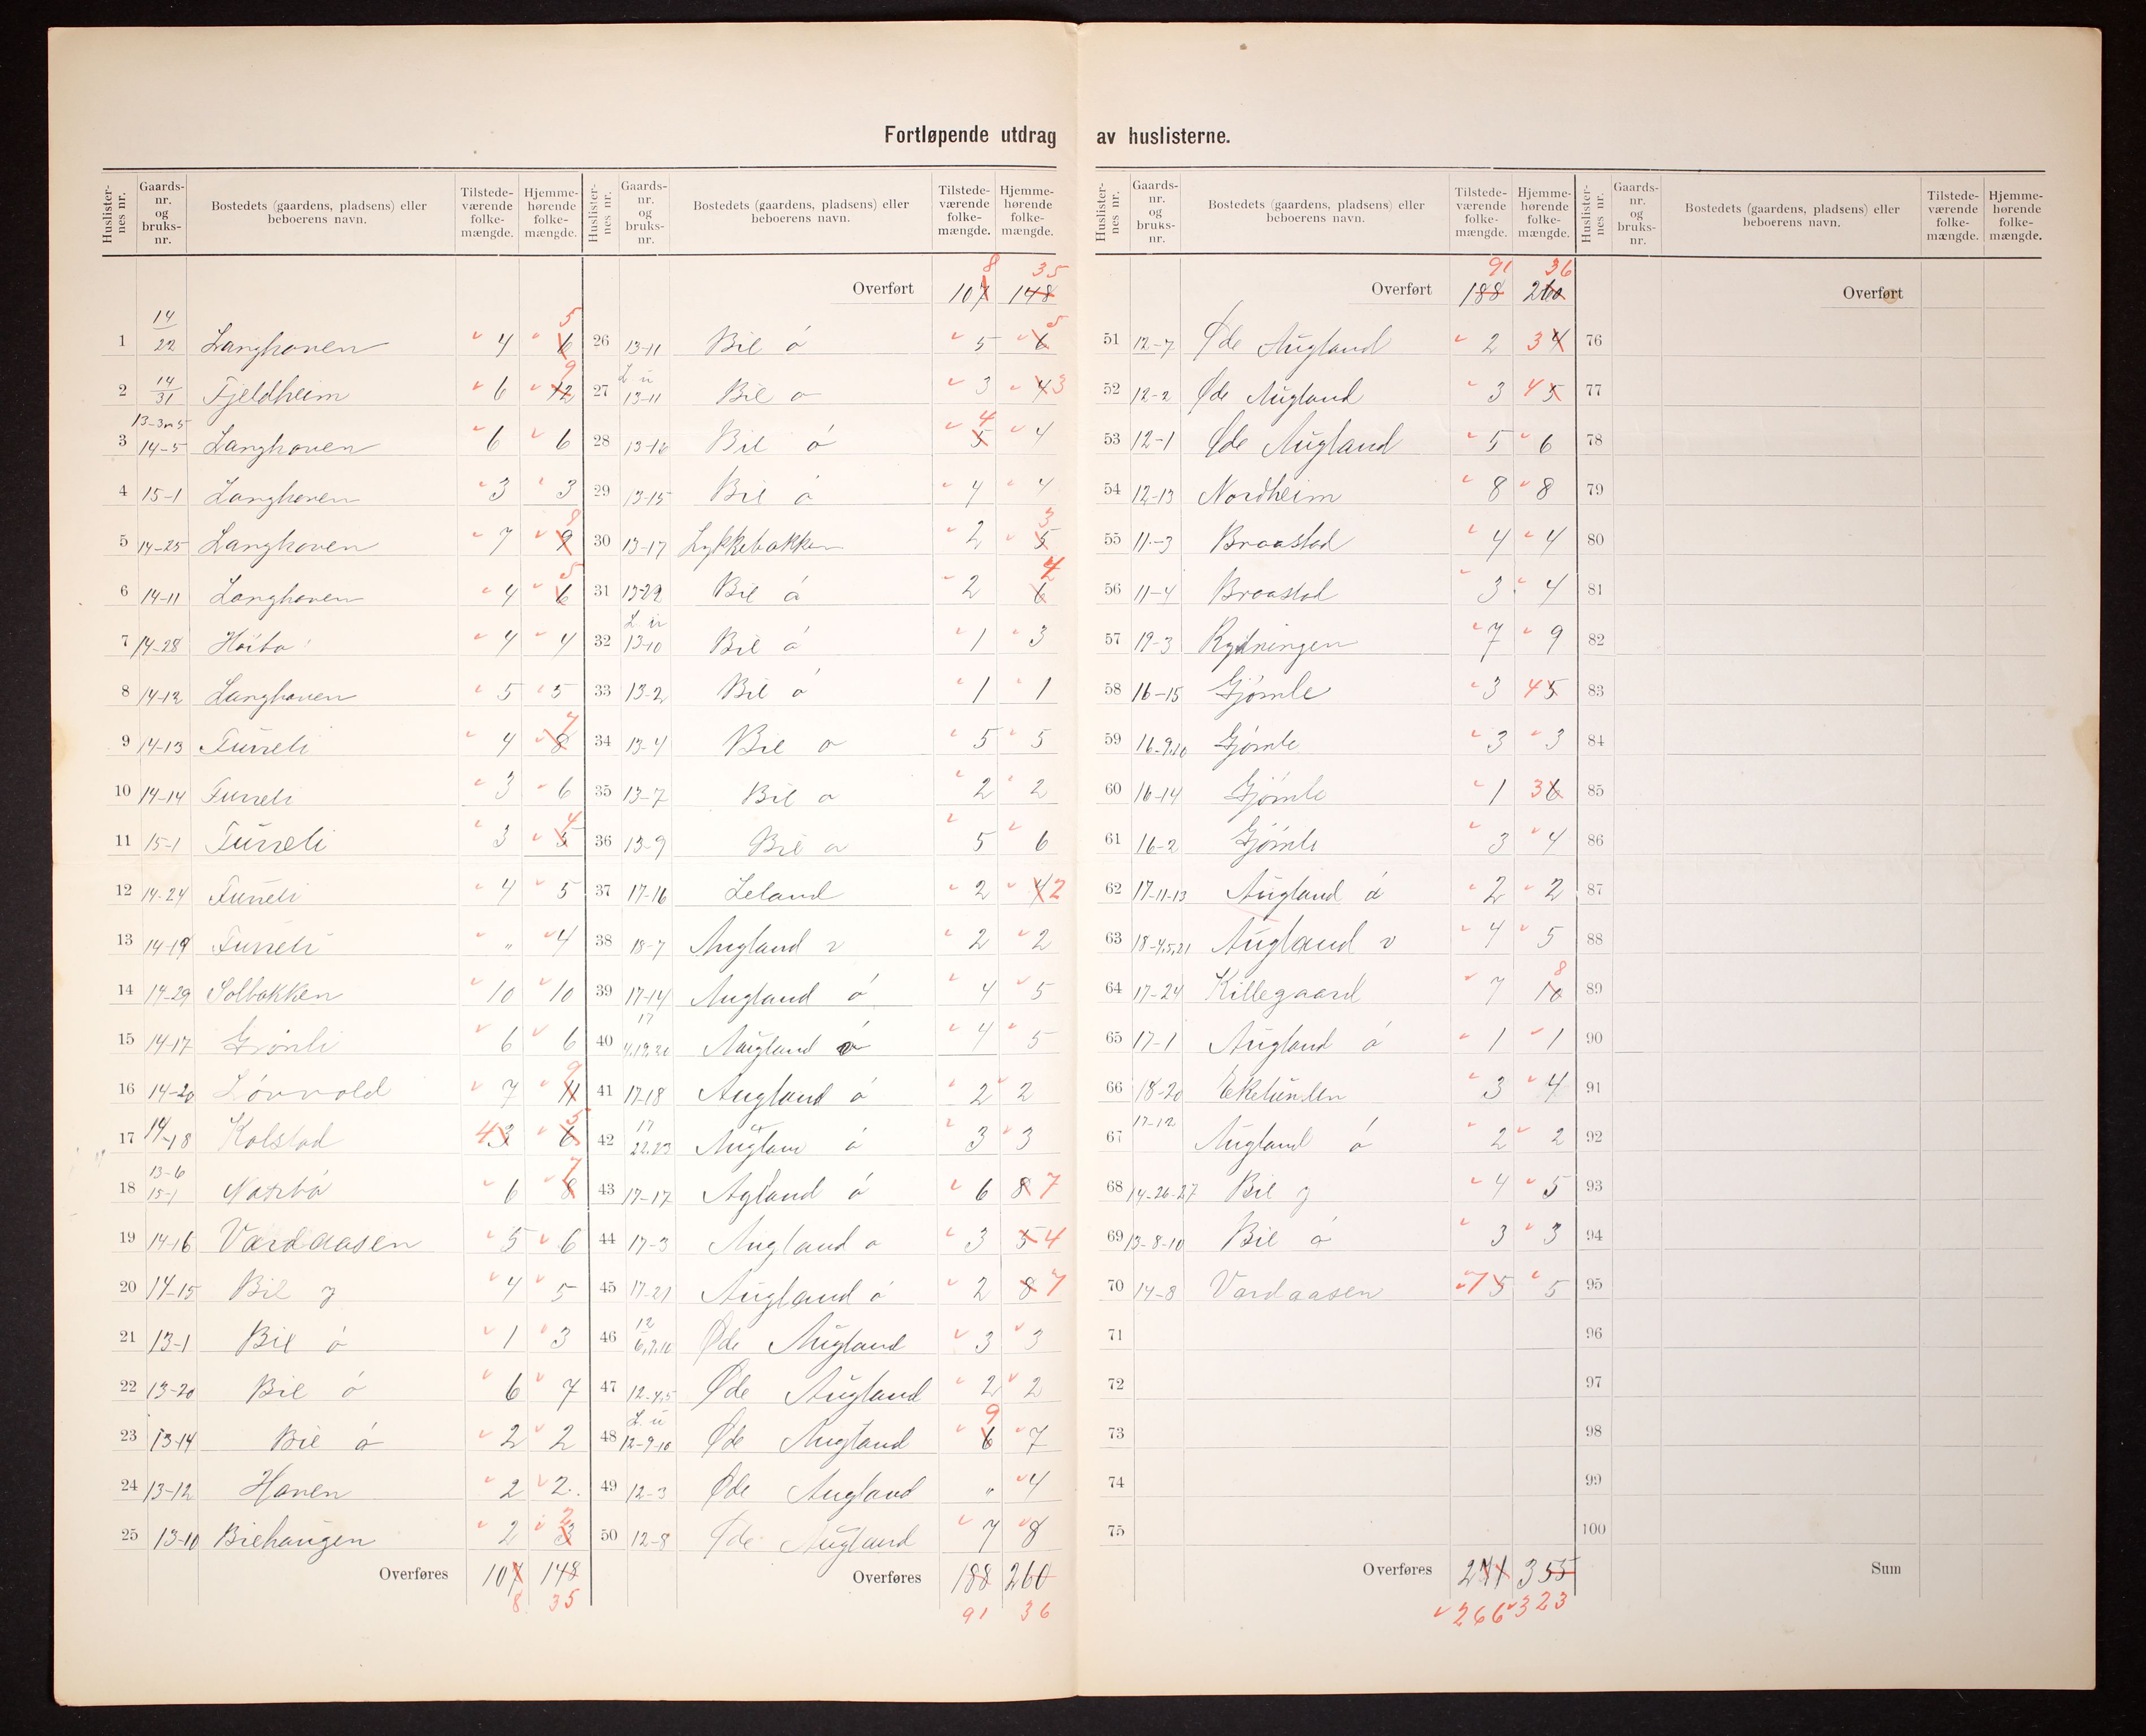 Fortløpende utdrag av huslisterne.
Huslisternes nr. Gaards-nr. og bruks-nr. Bostedets (gaardens, pladsens) eller beboerens navn. Tilstedeværende folkemængde. Hjemmehørende folkemængde.
1 14/22 Langhoven 4 6 5
2 14/31 Fjeldheim 6 12 9
3 13-3 m 5 14-5 Langhoven 6 6
4 15-1 Langhoven 3 3
5 14-25 Langhoven 7 9 8
6 14-11 Langhoven 4 6 5
7 14-28 4 4
8 14-12 Langhoven 5 5
9 14-13 Furreli 4 8 7
10 14-14 Furreli 3 6
11 15-1 Furreli 3 5 4
12 14-24 Furreli 4 5
13 14-19 Furreli " 4
14 14-29 Solbakken 10 10
15 14-17 Grönli 6 6
16 14-20 Lövvold 7 11 9
17 14-18 Kolstad 4 3 6 5
18 13-6 15-1 6 8 7
19 14-16 Vardaasen 5 6
20 14-15 Bil y 4 5
21 13-1 Bil ö 1 3
22 13-20 Bil ö 6 7
23 13-14 Bil ö 2 2
24 13-12 Haven 2 2
25 13-10 Biehaugen 2 3 2
Overføres 107 148
8 35
Huslisternes nr. Gaards-nr. og bruks-nr. Bostedets (gaardens, pladsens) eller beboerens navn. Tilstedeværende folkemængde. Hjemmehørende folkemængde.
Overført 107 8 148 35
26 13-11 Bil ö 5 6 5
27 L u 13-11 Bil ö 3 4 3
28 13-16 Bil ö 5 4 4
29 13-15 Bil ö 4 4
30 13-17 Lykkebakken 2 5 3
31 13-29 Bil ö 2 6 4
32 L. u 13-10 Bil ö 1 3
33 13-2 Bil ö 1 1
34 13-4 Bil ö 5 5
35 13-7 Bil ö 2 2
36 13-9 Bil ö 5 6
37 17-16 Leland 2 4 2
38 18-7 Augland v 2 2
39 17-14 Augland ö 4 5
40 17 4,19,20 Augland ö 4 5
41 17-18 Augland ö 2 2
42 17 22,23 Auglan ö 3 3
43 17-17 Agland ö 6 8 7
44 17-3 Augland ö 3 5 4
45 17-21 Augland ö 2 8 7
46 12 6,7,10 Øde Augland 3 3
47 12-4,5 Øde Augland 2 2
48 L. u 12-9-10 Øde Augland 6 9 7
49 12-3 Øde Augland " 4
50 12-8 Øde Augland 7 8
Overføres 188 260
91 36
Huslisternes nr. Gaards-nr. og bruks-nr. Bostedets (gaardens, pladsens) eller beboerens navn. Tilstedeværende folkemængde. Hjemmehørende folkemængde.
Overført 188 91 260 36
51 12-7 Øde Augland 2 3 4
52 12-2 Øde Augland 3 4 5
53 12-1 Øde Augland 5 6
54 12-13 Nordheim 8 8
55 11-3 Braastad 4 4
56 11-4 Braastad 3 4
57 19-3 Rydningen 7 9
58 16-15 Gjömle 3 4 5
59 16-9,10 Gjömle 3 3
60 16-14 Gjömle 1 3 6
61 16-2 Gjömle 3 4
62 17-11-13 Augland ö 2 2
63 18-4,5,21 Augland v 4 5
64 17-24 Killegaard 7 10 8
65 17-1 Augland ö 1 1
66 18-20 Ekelunden 3 4
67 17-12 Augland ö 2 2
68 14-26-27 Bil y 4 5
69 13-8-10 Bil ö 3 3
70 14-8 Vardaasen 7 5 5
71
72
73
74
75
Overføres 271 355
266 323
Huslisternes nr. Gaards-nr. og bruks-nr. Bostedets (gaardens, pladsens) eller beboerens navn. Tilstedeværende folkemængde. Hjemmehørende folkemængde.
Overført
76
77
78
79
80
81
82
83
84
85
86
87
88
89
90
91
92
93
94
95
96
97
98
99
100
Sum